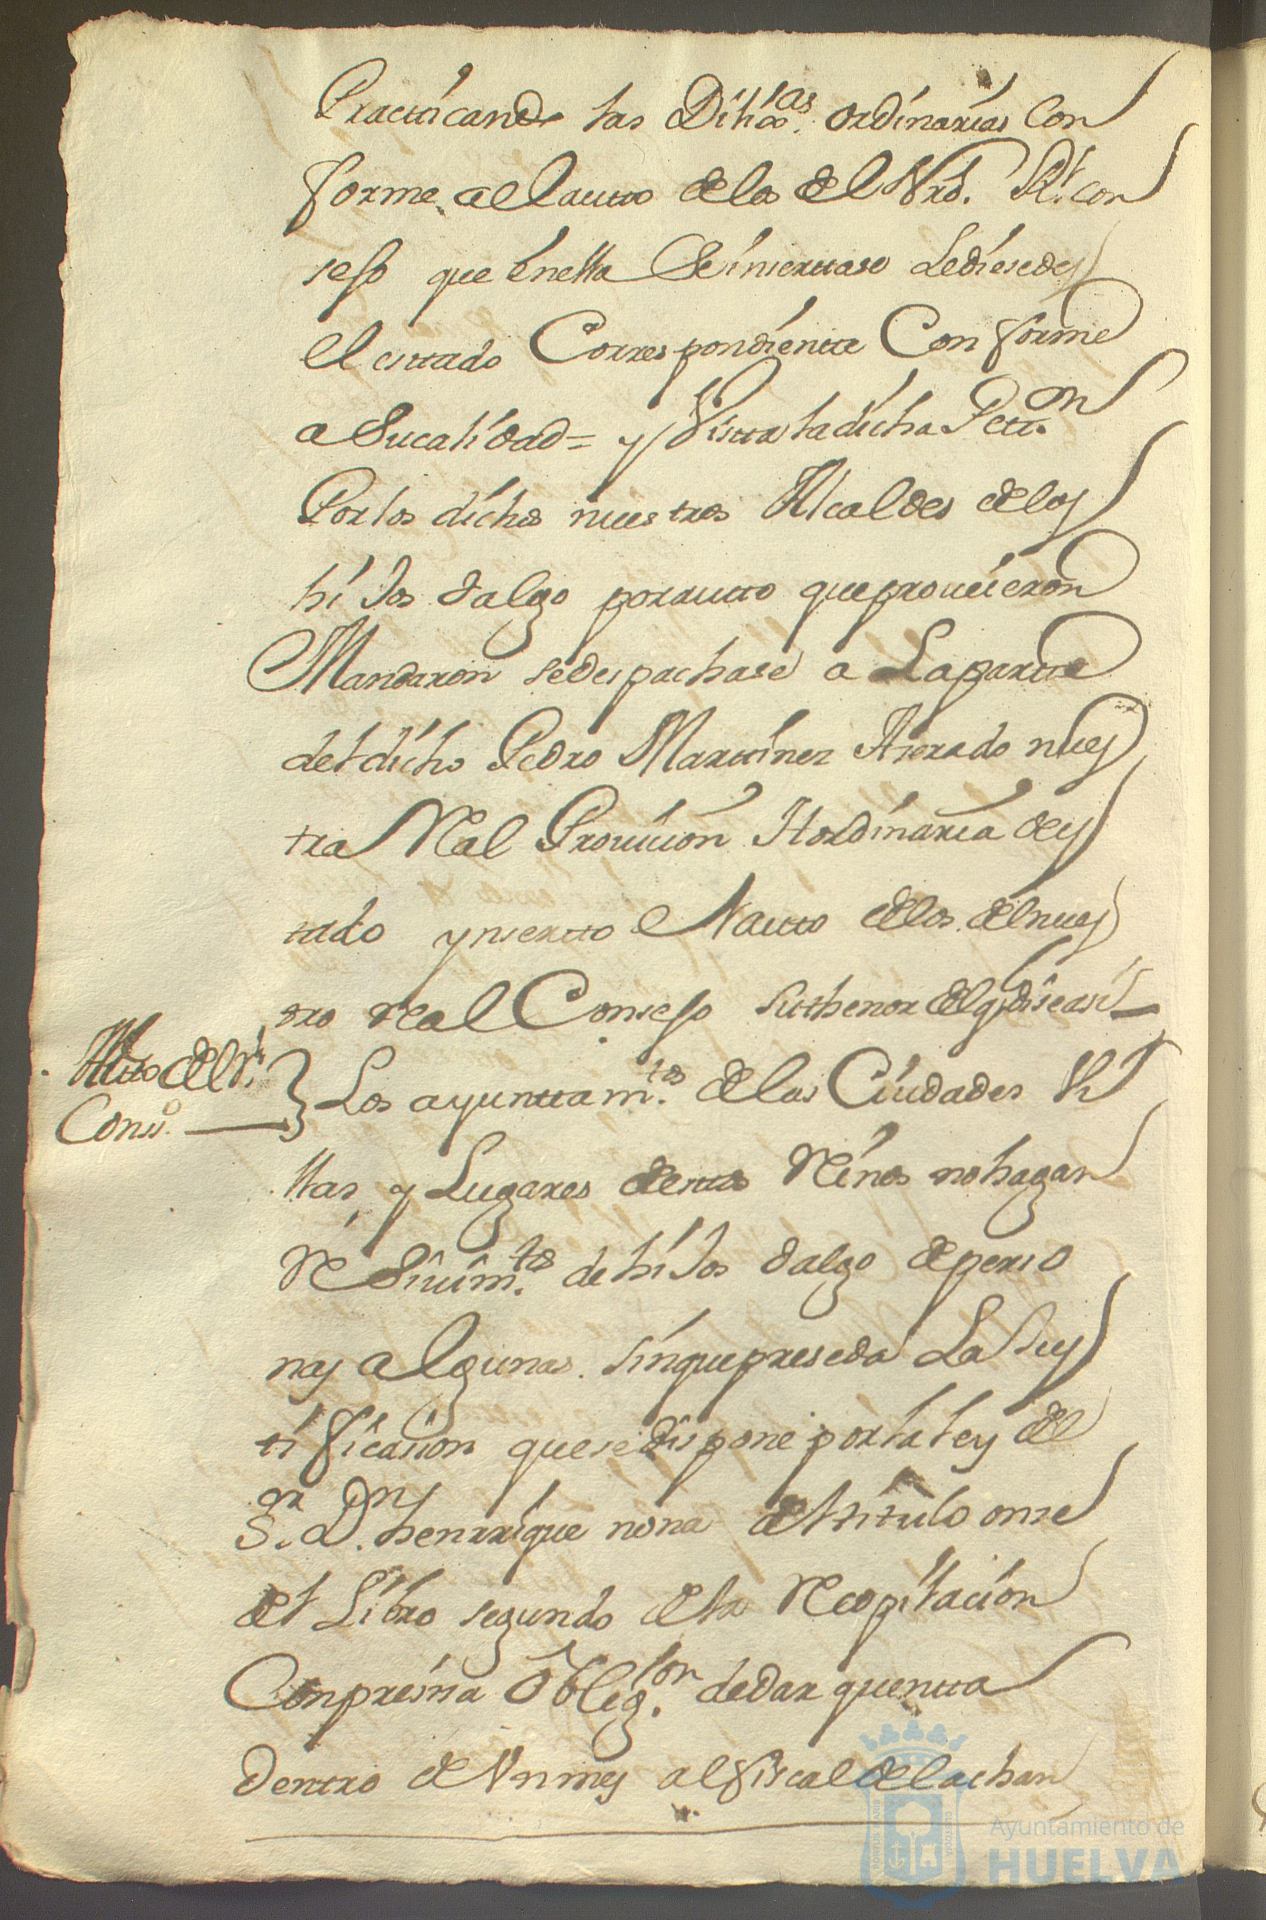 Practicando las Dilix.as ordinarias Con
forme al auto delos del Nro. Rl. con
sejo que enella Seinserttase Lediesedes
el esttado Correspondiente Conforme
a Sucalidad = y Vista ladicha Pettn.on
Por los dichos nuestros Alcaldes delos
hiJos dalgo porautto queproueieron
Mandaron sedespachase a Lapartte
deldicho Pedro Marttinez nues
tra Real Prouicion Hordinaria des
tado ynsertto elauto delos del nues
tro real Consejo Suthenor delqual diseasi
Autto del Rl.
Conso.
Los ayunttam.tos delas Ciudades Vi
llas, y Lugares desttos Reinos nohagan
ReSiuim.tos de hiJos dalgo aperso
nas algunas. sinquepreseda La Jus
tificasion quesedispone porlaley del
S.or D.n henrrique nona deltitulo onse
del Libro segundo dela Recopilacion
Conpresisa obligs.on dedar quentta
Dentro de Vnmes alfiscal delachan
Ayuntamiento de
HUELVA